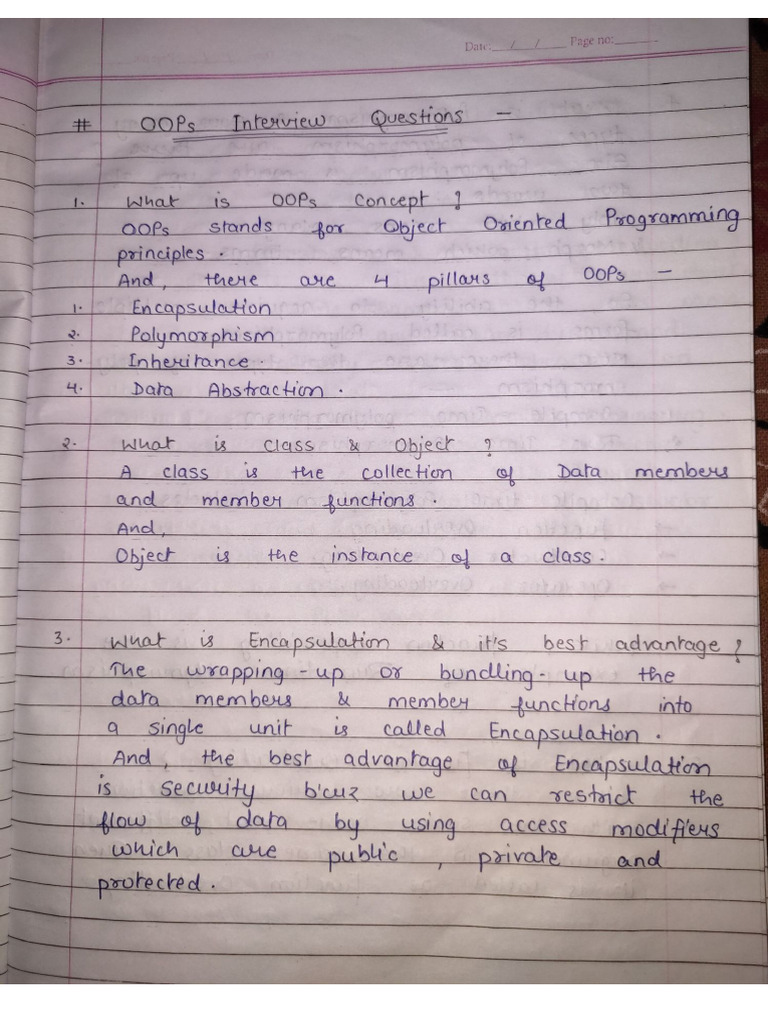 Date:__/__/__ Page no:______
# OOPs Interview Questions -
1. What is OOPs Concept ?
OOPs stands for Object Oriented Programming
principles.
And, there are 4 pillars of OOPs -
1. Encapsulation
2. Polymorphism
3. Inheritance.
4. Data Abstraction.
2. What is class & Object ?
A class is the collection of Data members
and member functions.
And,
Object is the instance of a class.
3. What is Encapsulation & it's best advantage?
The wrapping-up or bundling-up the
data members & member functions into
a single unit is called Encapsulation.
And, the best advantage of Encapsulation
is security b'cuz we can restrict the
flow of data by using access modifiers
which are public, private and
protected.